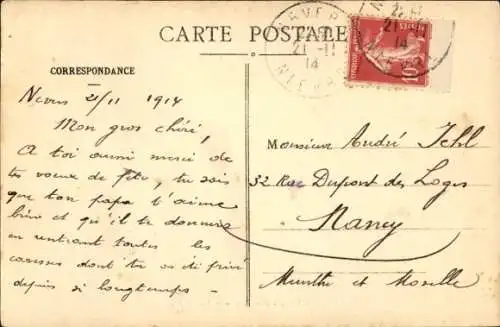 CARTE POSTALE
NEVERS
21-11
14
NIÈVRE
21-11
14
10
CORRESPONDANCE
Nevers 21/11 1914
Mon gros chéri,
A toi aussi merci de
tes voeux de fête, tu sais
que ton papa t'aime
bien et qu'il te donnera
en rentrant toutes les
caresses dont tu es privé
depuis si longtemps -
Monsieur André
32 Rue Dupont des Loges
Nancy
Meurthe et Moselle